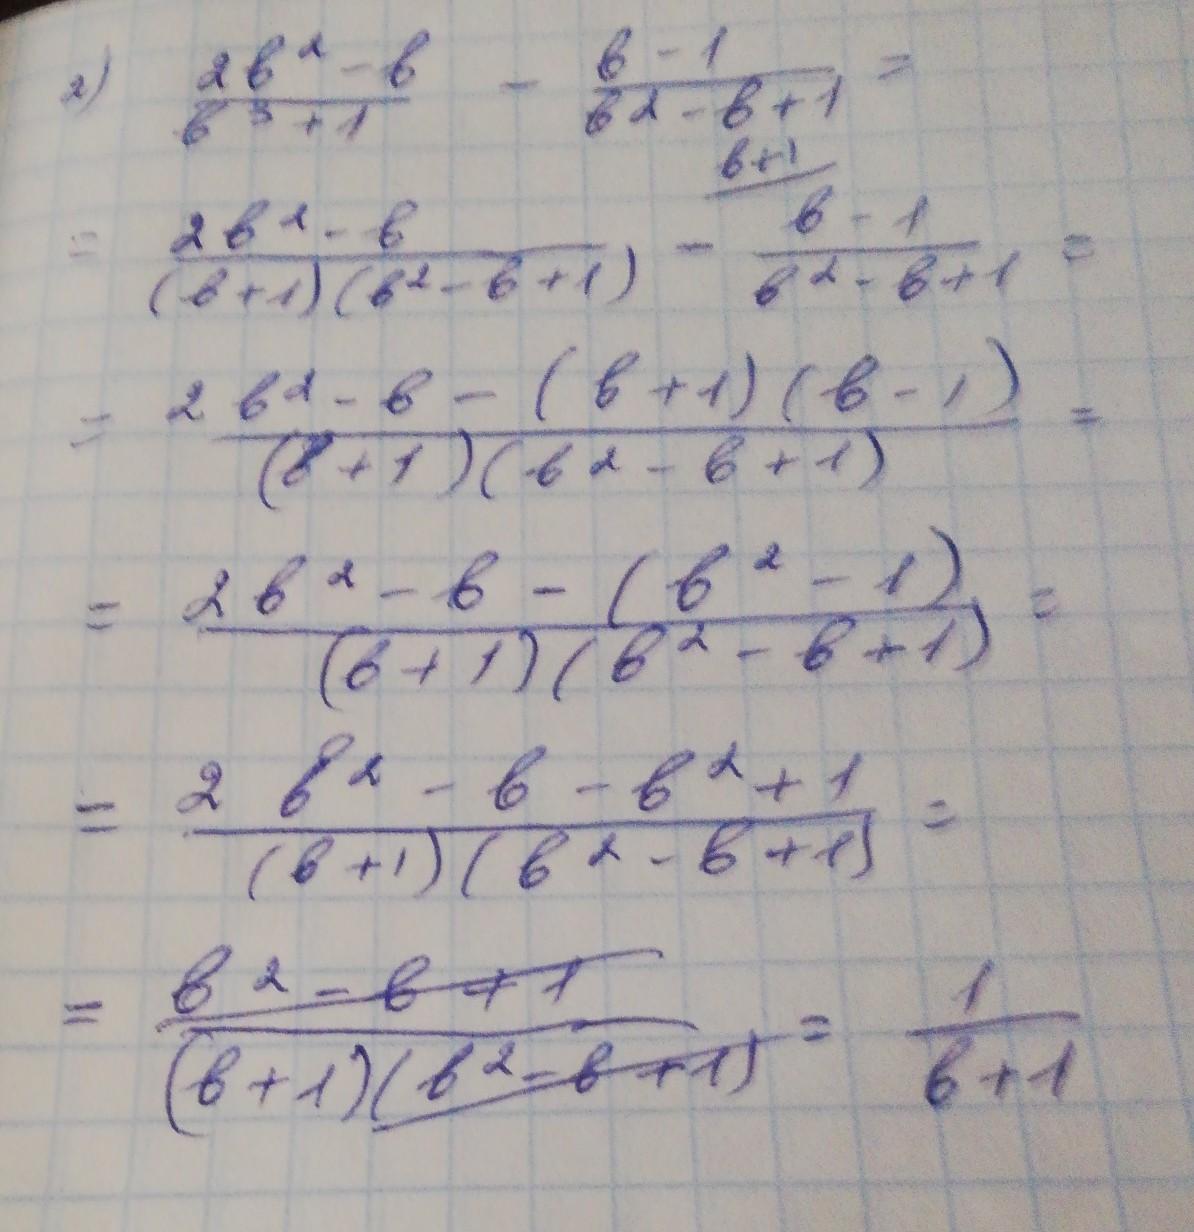 2) (2b² - b)/(b³ + 1) - (b - 1)/(b² - b + 1) =
b+1
= (2b² - b)/((b+1)(b² - b + 1)) - (b - 1)/(b² - b + 1) =
= (2b² - b - (b+1)(b - 1))/((b+1)(b² - b + 1)) =
= (2b² - b - (b² - 1))/((b+1)(b² - b + 1)) =
= (2b² - b - b² + 1)/((b+1)(b² - b + 1)) =
= (b² - b + 1)/((b+1)(b² - b + 1)) = 1/(b+1)